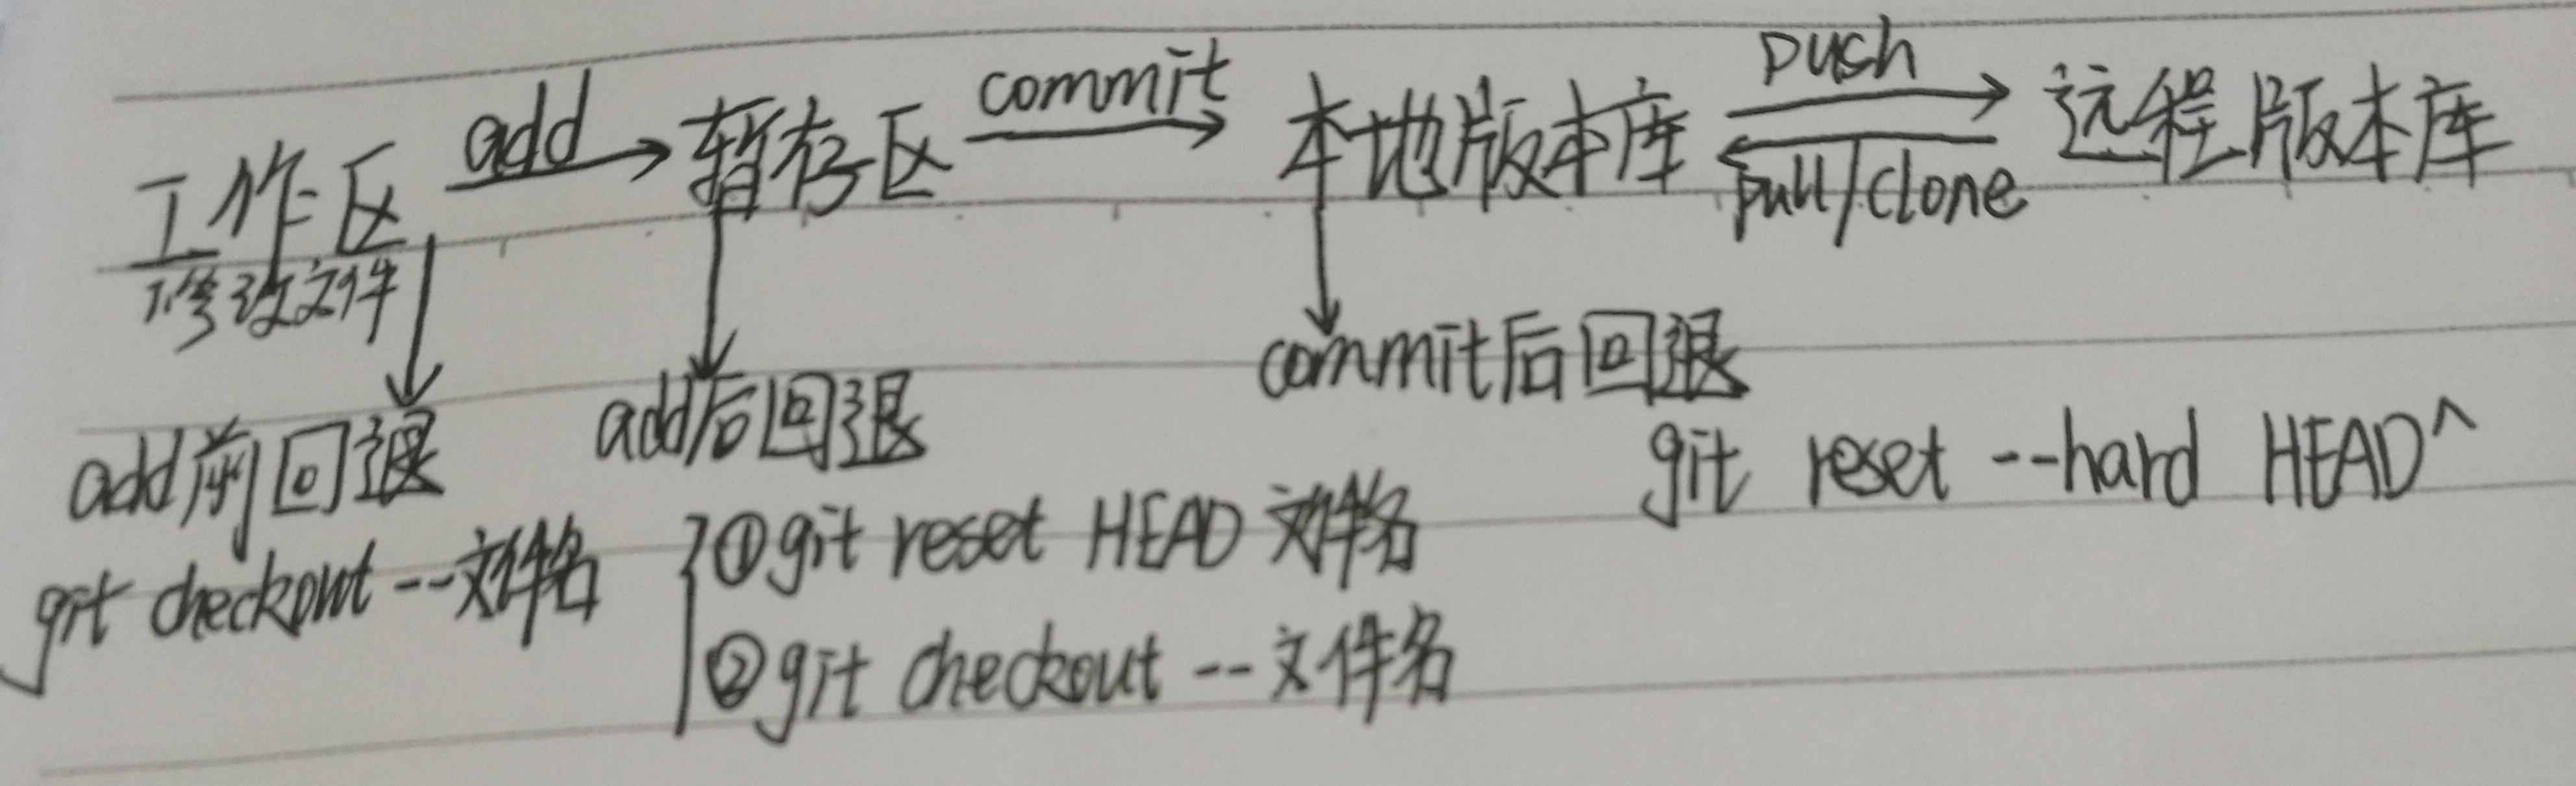 push
commit
add
工作区 暂存区 本地版本库 远程版本库
pull/clone
修改文件
commit后回退
add后回退
add前回退
git reset --hard HEAD^
①git reset HEAD 文件名
git checkout --文件名
②git checkout -- 文件名